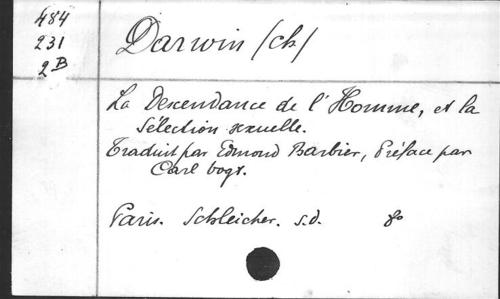 484
231
2B
Darwin (ch)
La Descendance de l'Homme, et la
Sélection sexuelle.
Traduit par Edmond Barbier, Préface par
Carl Vogt.
Paris. Schleicher. s.d. 8o